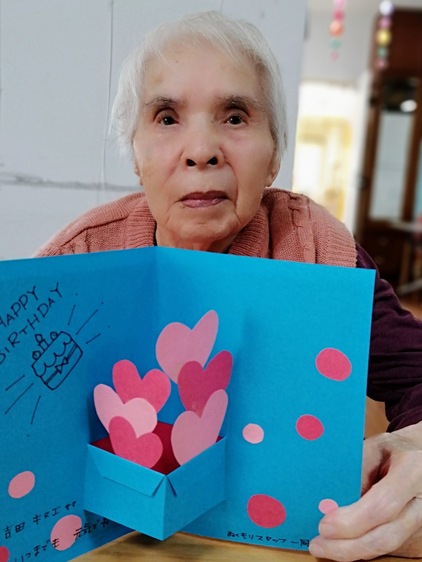 HAPPY
BIRTHDAY
吉田 キヌエ さま
いつまでも 元気で
ぬくもりスタッフ一同